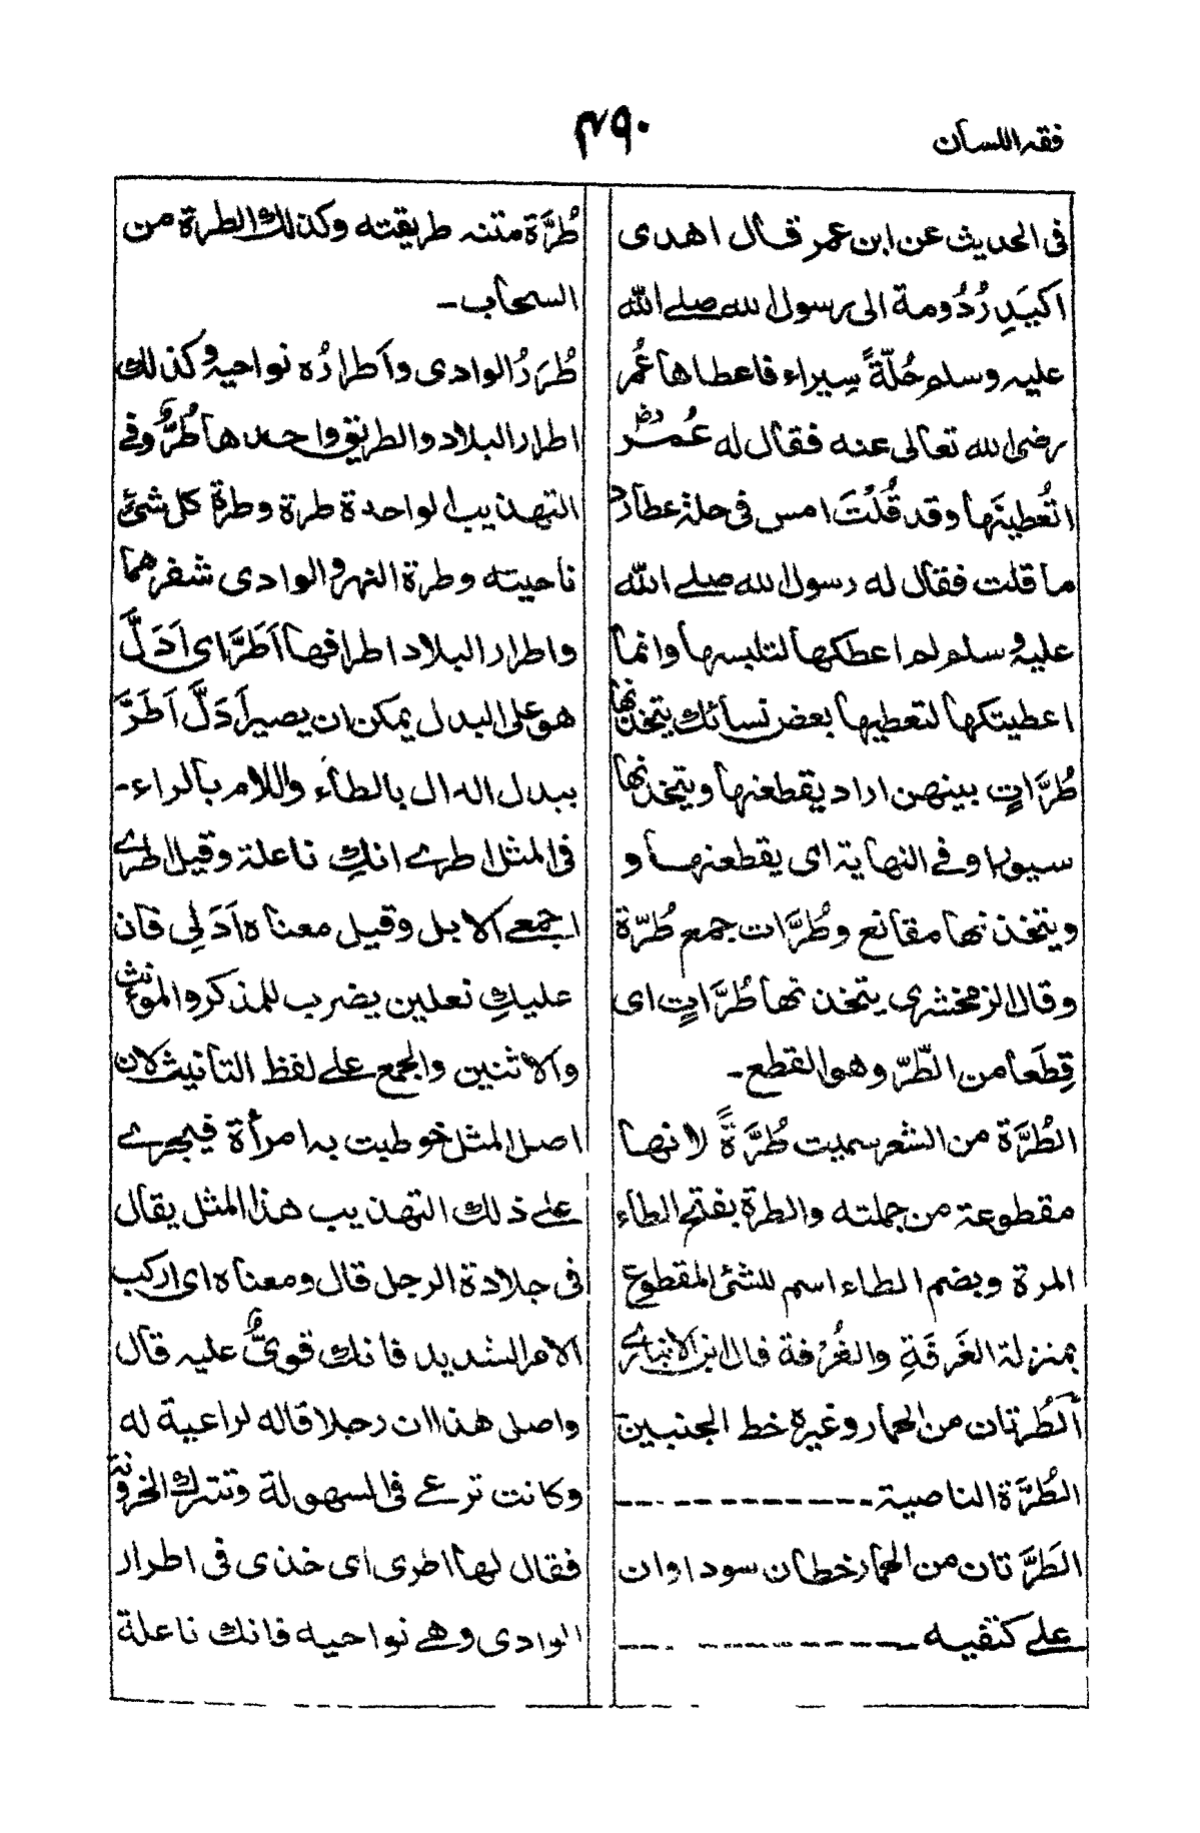 فقه اللسان
۴۹۰
فی الحدیث عن ابن عمر قال اهدی
اکیَدِرُدُومة الی رسول الله صلے الله
علیه وسلم حُلّةً سِیراء فاعطاها عُمر
رضی الله تعالی عنه فقال له عُمرؓ
اتُعطینَها وقد قُلتَ امس فی حلة عطارد
ما قلت فقال له رسول الله صلے الله
علیه وسلم لم اعطکها لتلبسها وانما
اعطیتکها لتعطیها بعض نسائك یتخذنها
طُرَّاتٍ بینهن اراد یقطعنها ویتخذنها
سیورا وفے النهایة ای یقطعنها و
ویتخذنها مقانع وطُرَّات جمع طُرّة
وقال الزمخشری یتخذنها طُرَّاتٍ ای
قِطَعا من الطّرّ وهو القطع۔
الطُرَّة من الشعر سمیت طُرَّةً لانها
مقطوعة من جملته والطرة بفتح الطاء
المرة وبضم الطاء اسم للشئ المقطوع
بمنزلة الغَرفَةِ والغُرْفة قال ابن الانباری
الطُرتان من الحمار وغیره خط الجنبین
الطُرَّة الناصیة
الطَرَّتان من الحمار خطان سوداوان
علے کتفیه
طُرَّة متنه طریقته وکذلك الطرة من
السحاب۔
طُرَرُ الوادی وأطرارُه نواحیه وکذلك
اطرار البلاد والطریق واحدها طُرٌّ وفے
التهذیب الواحدة طرة وطرة کل شئ
ناحیته وطرة النهر والوادی شفرهما
واطرار البلاد اطرافها اَطَرَّ ای اَدَلَّ
هو علی البدل یمکن ان یصیر اَدَلَّ اَطَرَّ
ببدل الدال بالطاء واللام بالراء۔
فی المثل اطرے انكِ ناعلة وقیل اطرے
اجمعے الابل وقیل معناه اَدَلِی فان
علیكِ نعلین یضرب للمذکر والمؤنث
والاثنین والجمع علے لفظ التانیث لان
اصل المثل خوطبت به امرأة فیجرے
علے ذلك التهذیب هذا المثل یقال
فی جلادة الرجل قال ومعناه ای ارکب
الامر الشدید فانك قویٌّ علیه قال
واصل هذا ان رجلا قاله لراعیة له
وکانت ترعے فی السهولة وتترك الحزونة
فقال لها اطری ای خذی فی اطرار
الوادی وهے نواحیه فانك ناعلة